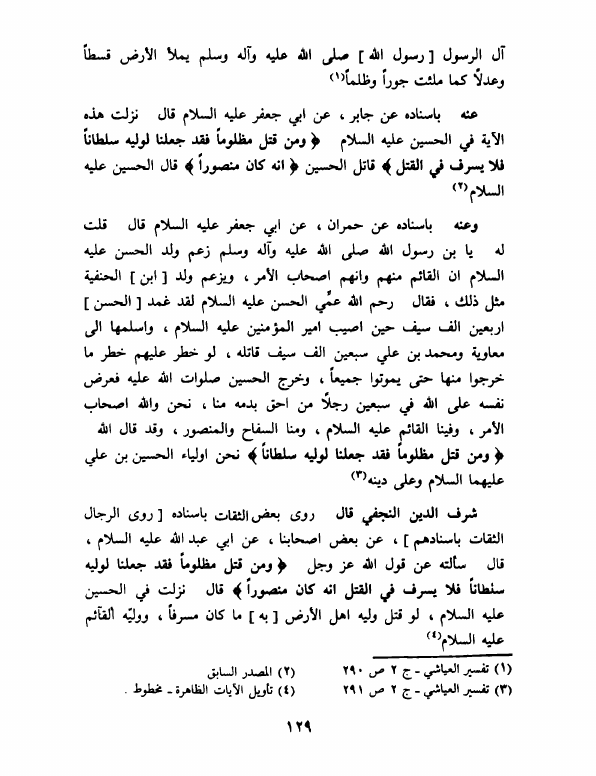 آل الرسول [ رسول الله ] صلى الله عليه وآله وسلم يملأ الأرض قسطاً
وعدلاً كما ملئت جوراً وظلماً(١)
عنه باسناده عن جابر ، عن ابي جعفر عليه السلام قال نزلت هذه
الآية في الحسين عليه السلام ﴿ ومن قتل مظلوماً فقد جعلنا لوليه سلطاناً
فلا يسرف في القتل ﴾ قاتل الحسين ﴿ انه كان منصوراً ﴾ قال الحسين عليه
السلام(٢)
وعنه باسناده عن حمران ، عن ابي جعفر عليه السلام قال قلت
له يا بن رسول الله صلى الله عليه وآله وسلم زعم ولد الحسن عليه
السلام ان القائم منهم وانهم اصحاب الأمر ، ويزعم ولد [ ابن ] الحنفية
مثل ذلك ، فقال رحم الله عمِّي الحسن عليه السلام لقد غمد [ الحسن ]
اربعين الف سيف حين اصيب امير المؤمنين عليه السلام ، واسلمها الى
معاوية ومحمد بن علي سبعين الف سيف قاتله ، لو خطر عليهم خطر ما
خرجوا منها حتى يموتوا جميعاً ، وخرج الحسين صلوات الله عليه فعرض
نفسه على الله في سبعين رجلاً من احق بدمه منا ، نحن والله اصحاب
الأمر ، وفينا القائم عليه السلام ، ومنا السفاح والمنصور ، وقد قال الله
﴿ ومن قتل مظلوماً فقد جعلنا لوليه سلطاناً ﴾ نحن اولياء الحسين بن علي
عليهما السلام وعلى دينه(٣)
شرف الدين النجفي قال روى بعض الثقات باسناده [ روى الرجال
الثقات باسنادهم ] ، عن بعض اصحابنا ، عن ابي عبد الله عليه السلام ،
قال سألته عن قول الله عز وجل ﴿ ومن قتل مظلوماً فقد جعلنا لوليه
سلطاناً فلا يسرف في القتل انه كان منصوراً ﴾ قال نزلت في الحسين
عليه السلام ، لو قتل وليه اهل الأرض [ به ] ما كان مسرفاً ، ووليّه ألقائم
عليه السلام(٤)
(١) تفسير العياشي - ج ٢ ص ٢٩٠ (٢) المصدر السابق
(٣) تفسير العياشي - ج ٢ ص ٢٩١ (٤) تأويل الآيات الظاهرة - مخطوط .
١٢٩